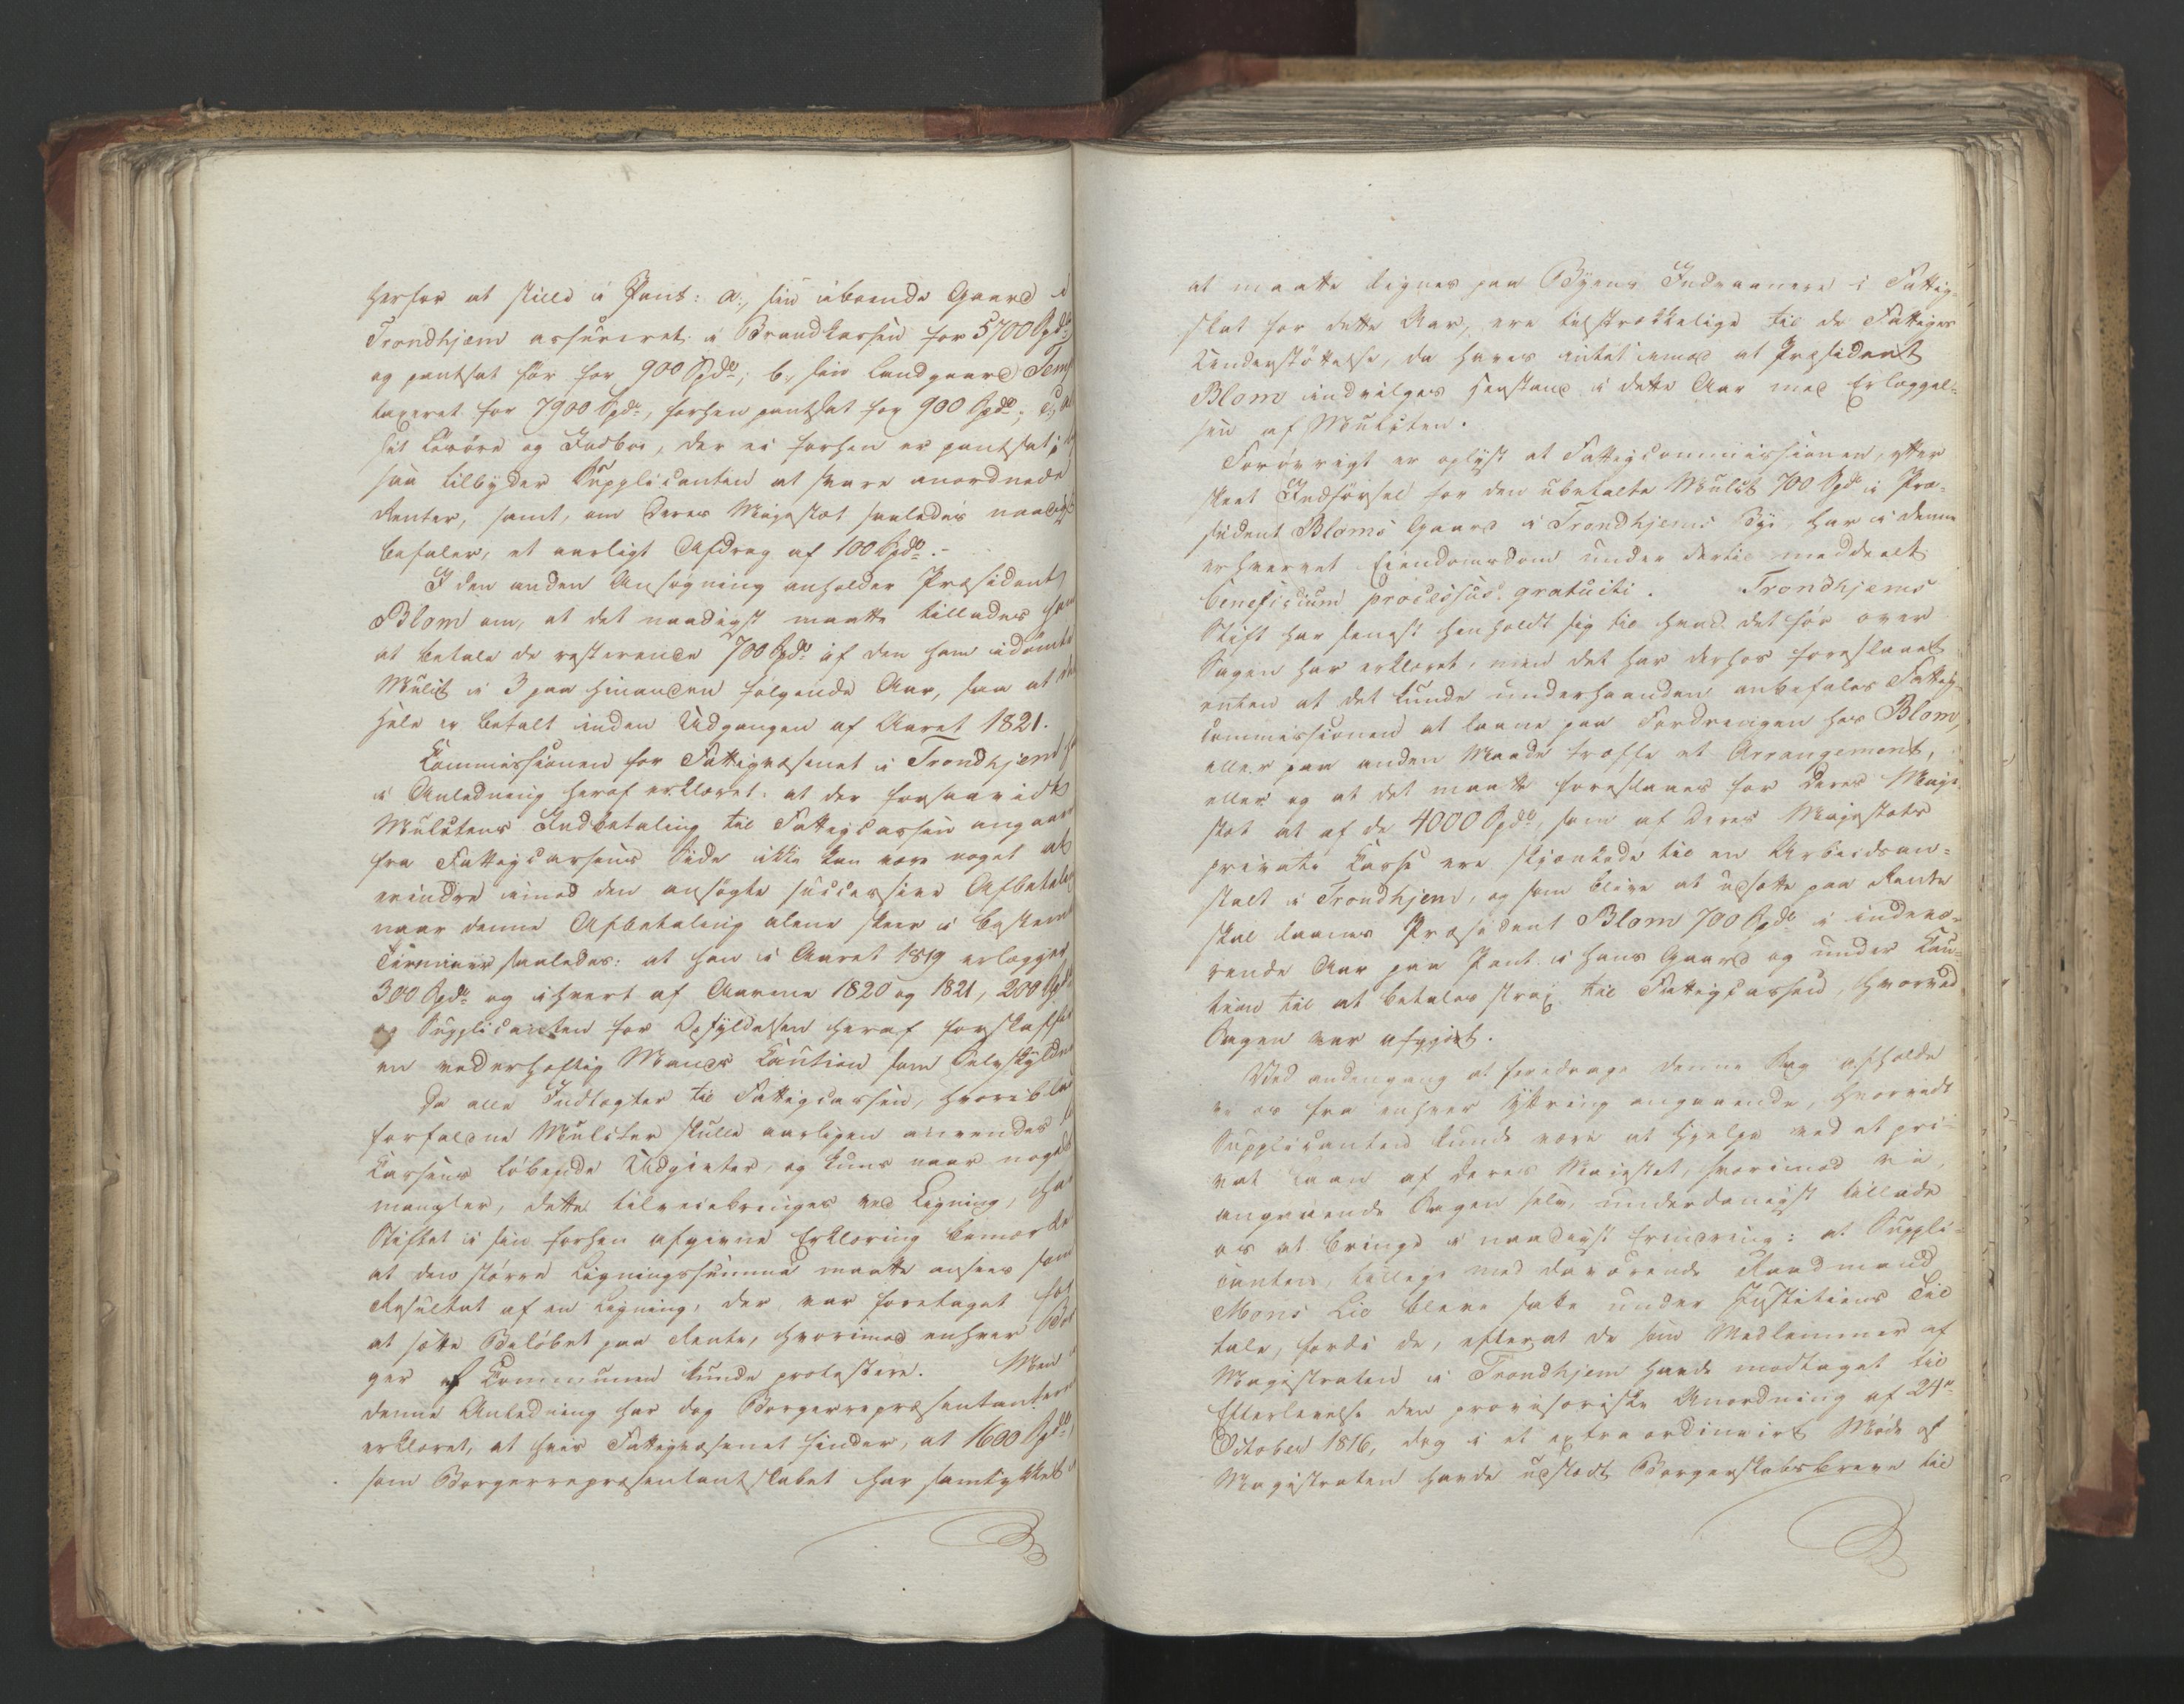 herfor at stille i Pant: a, sin iboende Gaard i
Trondhjem assureret i Brandkassen for 5700 Spdlr
og pantsat før for 900 Spdlr; b, sin Landgaard
taxeret for 7900 Spdlr, forhen pantsat for 900 Spdlr;
sit Løsøre og Indboe, der ei forhen er pantsat;
saa tilbyder Supplicanten at svare anordnede
Renter, samt, om Deres Majestæt saaledes naadigst
befaler, et aarligt Afdrag af 100 Spdlr.-
I den anden Ansøgning anholder Præsident
Blom om, at det naadigst maatte tillades ham
at betale de resterende 700 Spdlr af den ham idømte
Mulct i 3 paa hinanden følgende Aar, saa at det
Hele er betalt inden Udgangen af Aaret 1821.
Commissionen for Fattigvæsenet i Trondhjem
i Anledning heraf erklæret: at der forsaavidt
Mulctens Indbetaling til Fattigcassen angaaer
fra Fattigcassens Side ikke kan være noget at
erindre imod den ansøgte successive Afbetaling
naar denne Afbetaling alene skeer i bestemte
Terminer saaledes: at han i Aaret 1819 erlægger
300 Spdlr og i hvert af Aarene 1820 og 1821, 200 Spdlr
og Supplicanten for Opfyldelsen heraf forskaffer
en vederhæftig Mands Caution som Selvskyldner
Da alle Indtægter til Fattigcassen, hvoriblandt
forfaldne Mulcter skulle aarligen anvendes til
Cassens løbende Udgivter, og kuns naar noget
mangler, dette tilveiebringes ved Ligning, har
Stiftet i sin forhen afgivne Erklæring bemærket
at den større Ligningssumma maatte ansees som
Resultat af en Ligning, der var foretaget for
at sætte Beløbet paa Rente, hvorimod enhver Bor
ger af Communen kunde protestere. Men i
denne Anledning har dog Borgerrepræsentanterne
erklæret, at hvis Fattigvæsenet finder, at 1600 Spdlr
som Borgerrepræsentantskabet har samtykket i
at maatte lignes paa Byens Indvaanere i Fattig-
skat for dette Aar, ere tilstrækkelige til de Fattiges
Understøttelse, da haves intet imod at Præsident
Blom indvilges Henstand i dette Aar med Erlæggel-
sen af Mulcten.
Forøvrigt er oplyst at Fattigcommissionen, efter
skeet Indførsel for den ubetalte Mulct 700 Spdlr i Præ-
sident Bloms Gaard i Trondhjems Bye, har i denne
erhvervet Eiendomsdom under dertil meddeelt
beneficium processus gratuiti. Trondhjems
Stift har senest henholdt sig til hvad det før over
Sagen har erklæret, men det har derhos foreslaaet
enten at det kunde underhaanden anbefales Fattig-
commissionen at laane paa Fordringen hos Blom,
eller paa anden Maade træffe et Arrangement,
eller og at det maatte foreslaaes for Deres Maje-
stæt at af de 4000 Spdlr, som af Deres Majestæts
private Casse ere skjænkede til en Arbeidsan-
stalt i Trondhjem, og som blive at udsætte paa Rente
skal laanes Præsident Blom 700 Spdlr i indevæ-
rende Aar paa Pant i hans Gaard og under Cau-
tion til at betales strax til Fattigcassen, hvorved
Sagen var afgjort.
Ved andengang at foredrage denne Sag afholde
vi os fra enhver Yttring angaaende, hvorvidt
Supplicanten kunde være at hjelpe ved et pri-
vat Laan af Deres Majestæt, hvorimod vi,
angaaende Sagen selv, underdanigst tillade
os at bringe i naadigst Erindring: at Suppli-
canten, tillige med daværende Raadmand
Mons Lie bleve satte under Justitiens Til
tale, fordi de, efterat de som Medlemmer af
Magistraten i Trondhjem havde modtaget til
Efterlevelse den provisoriske Anordning af 24de
October 1816, dog i et extraordinairt Møde af
Magistraten havde udstedt Borgerskabsbreve til